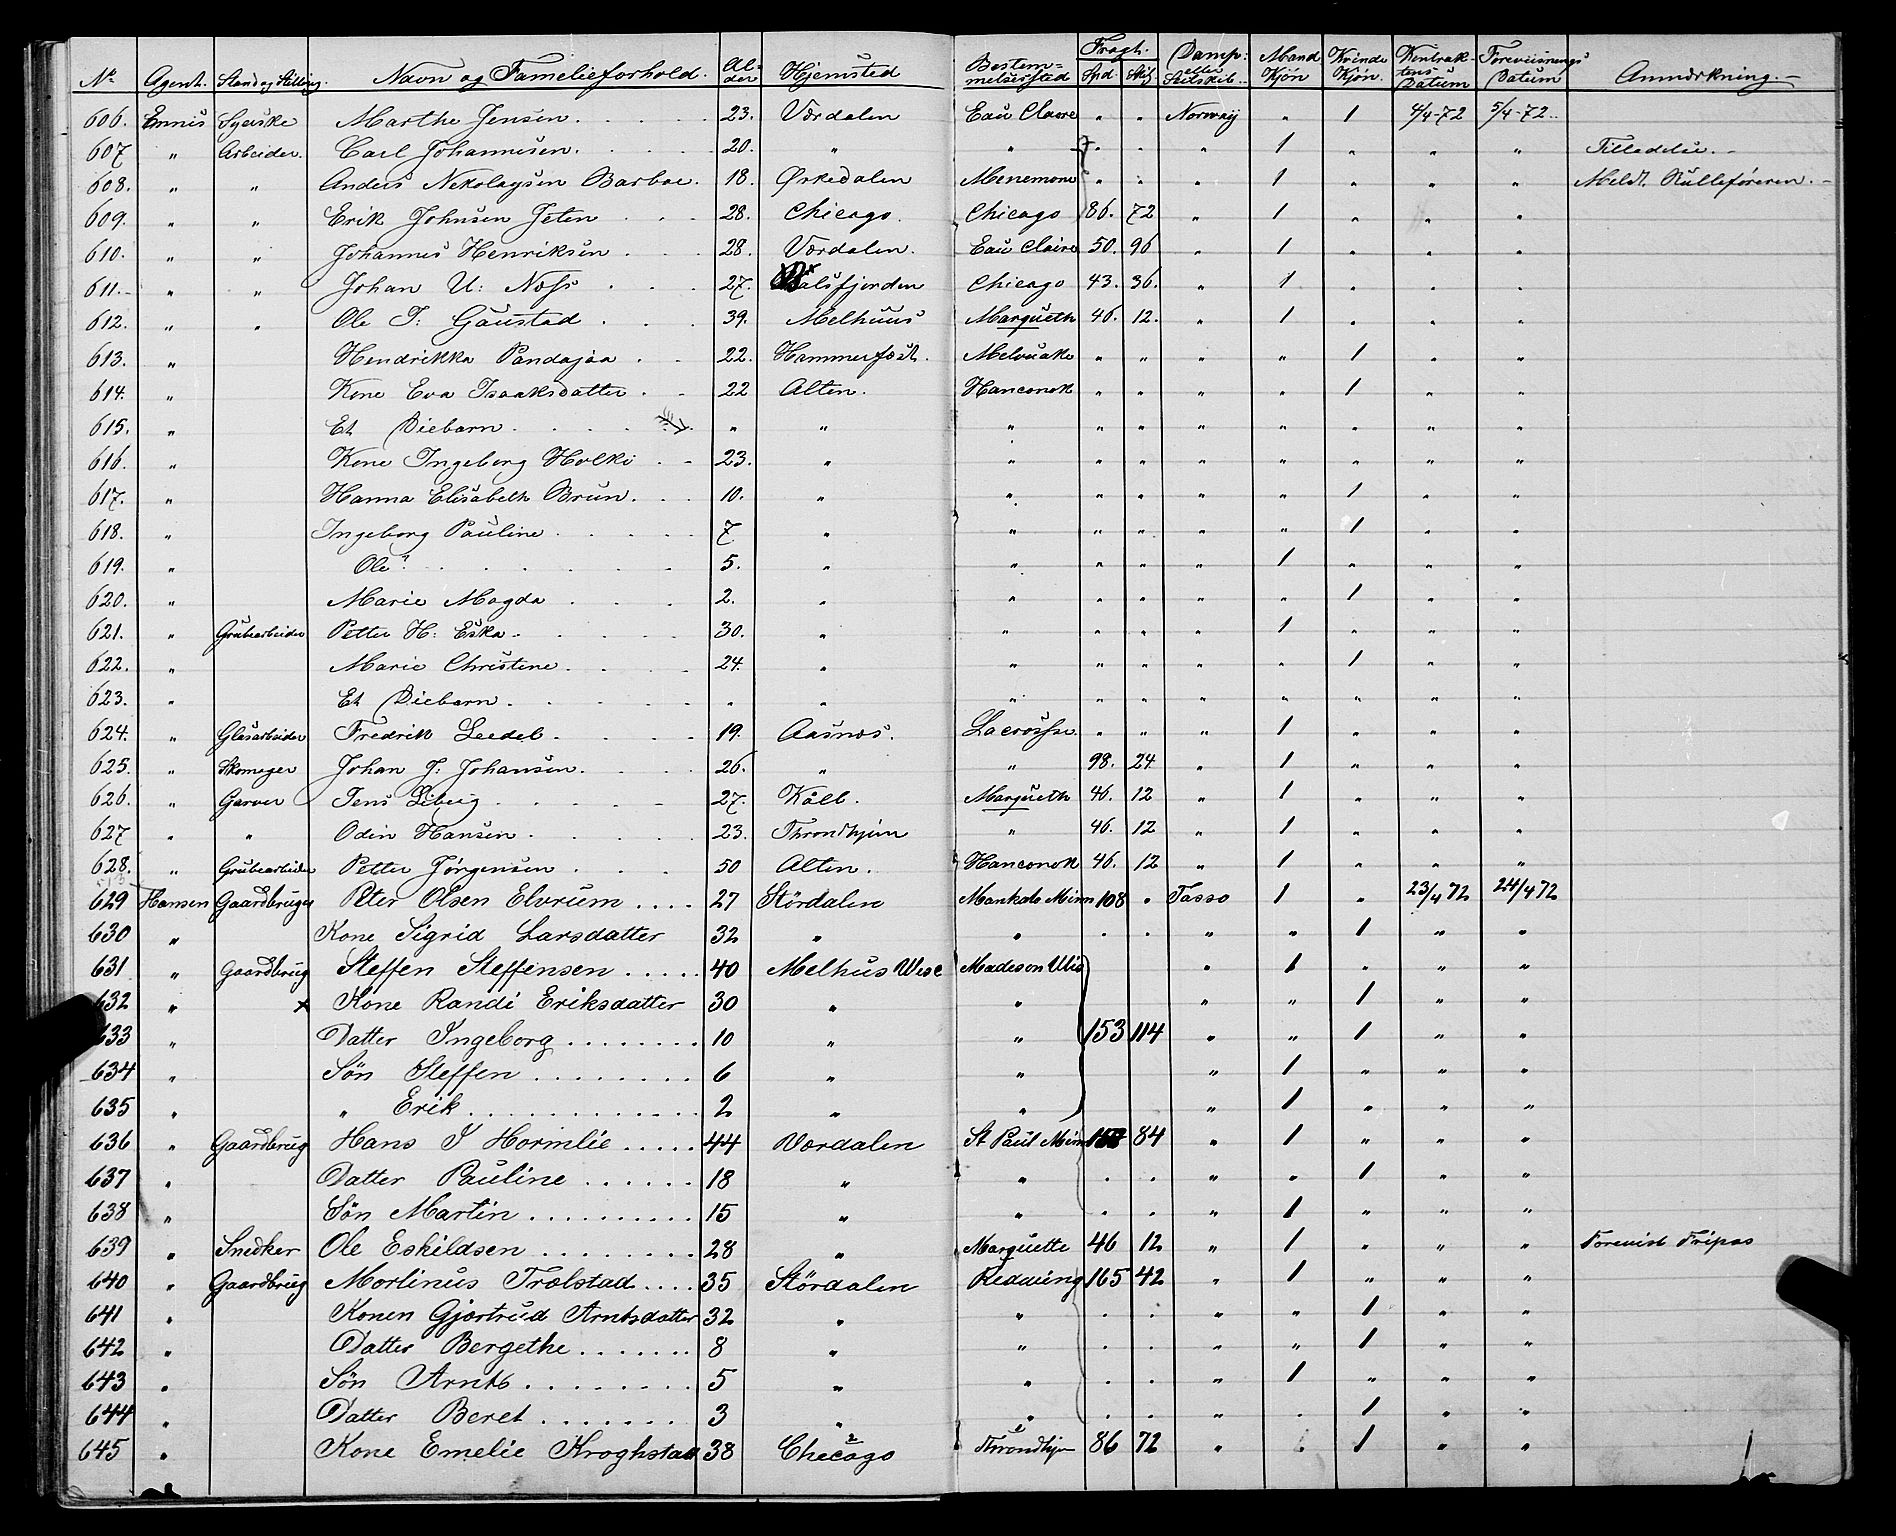 No. Agent. Stand og Stilling. Navn og Familieforhold. Alder Hjemsted Bestemmelsessted Fragt. Spd. Skil. Damp eller Seilskib. Mand Kjön Kvinde Kjön. Kontraktens Datum Foreviisnings Datum Anmærkning.
606. Ennis Syerske Marthe Jensen 23. Værdalen Eau Claire " " Norway " 1 4/4-72 5/4-72
607 " Arbeider. Carl Johannesen. 20. " " " " " 1 " " " Tilladelse.
608. " " Anders Nekolaysen Barboe. 18. Ørkedalen Menemone " " " 1 " " " Meldt. Rulleføreren.
609. " " Erik Johnsen Jeten 28. Chicago. Chicago 86. 72 " 1 " " "
610. " " Johannes Henriksen 28. Værdalen. Eau Claire 50. 96 " 1 " " "
611. " " Johan U: Næss 27. Balsfjorden Chicago 43. 36. " 1 " " "
612. " " Ole T: Gaustad 39. Melhuus Marqueth 46. 12. " 1 " " "
613. " Hendrikka Pandajaa 22. Hammerfest. Melvuake " " " " 1 " "
614. " Kone Eva Isaaksdatter 22 Alten. Hanconok " " " " 1 " "
615. " Et Diebarn " " " " " " " " " "
616. " Kone Ingeborg Holki 23. " " " " " " " " "
617. " Hanna Elisabeth Brun. 10. " " " " " " 1 " "
618. " Ingeborg Pauline 7. " " " " " " 1 " "
619. " Ole 5. " " " " " 1 " " "
620. " Marie Magda 2. " " " " " " 1 " "
621. " Grubearbeider Petter H: Eska 30. " " " " " 1 " " "
622. " Marie Christine 24. " " " " " " 1 " "
623. " Et Diebarn " " " " " " " " " "
624. " Glasarbeider Fredrik Leedel 19. Aasnæs. Lacrosse " " " 1 " " "
625. " Skomager Johan J: Johansen. 26. " " 98. 24 " 1 " " "
626. " Garver Jens Liberg 27. Kåll. Marqueth 46. 12 " 1 " " "
627 " " Odin Hansen 23. Throndhjem " 46. 12 " 1 " " "
628. " Grubearbeider Petter Jörgensen 50 Alten. Hanconok 46. 12 " 1 " " "
629 Hansen Gaardbruger Peter Olsen Elvrum 27 Stördalen Mankato Minn 108 " Tasso 1 " 23/4 72 24/4 72
630 " Kone Sigrid Larsdatter 32 " " " " " " 1 " "
631 " Gaardbrug Steffen Steffensen 40 Melhus Madeson Wis " 1 " " "
632 " x Kone Randi Eriksdatter 30 " " " " 1 " "
633 " Datter Ingeborg 10 " " 153 114 " " 1 " "
634 " Sön Steffen 6 " " " 1 " " "
635 " " Erik 2 " " " 1 " " "
636 " Gaardbrug Hans J Hormlie 44 Værdalen St Paul Minn 84 " 1 " " "
637 " Datter Pauline 18 " " " " " " 1 " "
638 " Sön Martin 15 " " " " " 1 " " "
639 " Snedker Ole Eskildsen 28 " Marquette 46 12 " 1 " " " Forevist Fripas
640 " Gaardbrug Mortinus Trælstad 35 Stördalen Redwing 165 42 " 1 " " "
641 " Konen Gjærtrud Arntsdatter 32 " " " " " " 1 " "
642 " Datter Bergethe 8 " " " " " " 1 " "
643 " Sön Arnts 5 " " " " " 1 " " "
644 " Datter Beret 3 " " " " " " 1 " "
645 " Kone Emelie Kroghstad 38 Checago Throndhjem 86 72 " " 1 " "